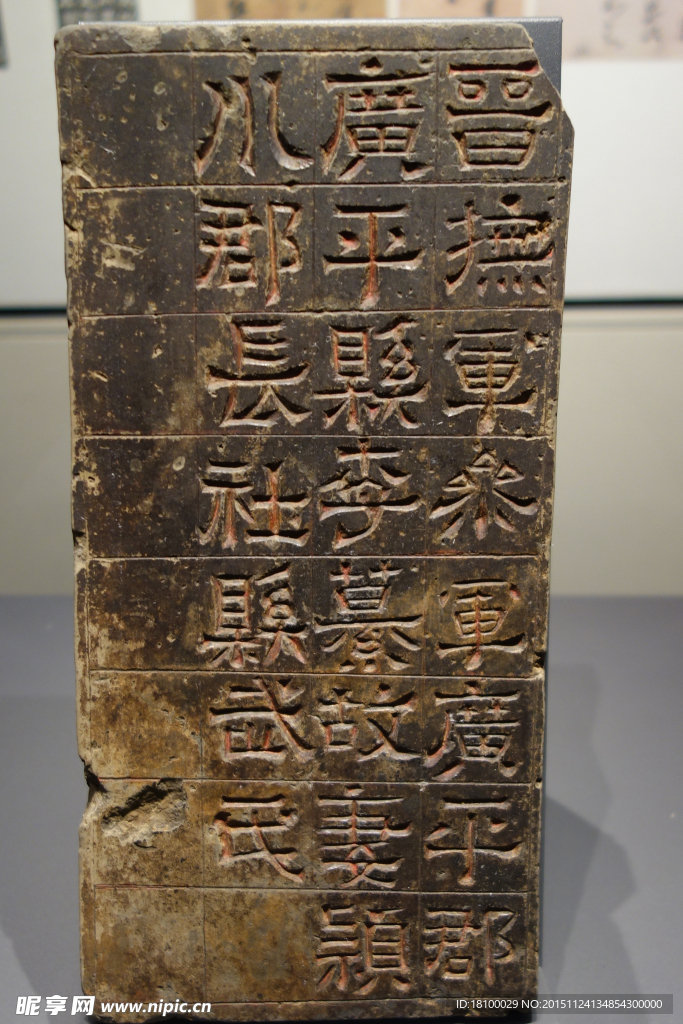 晉撫軍參軍廣平郡
廣平縣李纂故妻潁
川郡長社縣武氏
昵享网 www.nipic.cn
ID:18100029 NO:20151124134854300000